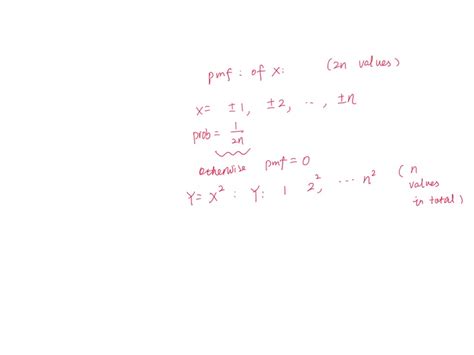 pmf : of X: (2n values)
x= ±1, ±2, ..., ±n
prob = 1/2n
otherwise pmf = 0
Y= X² : Y: 1 2², ... n² ( n values in total)